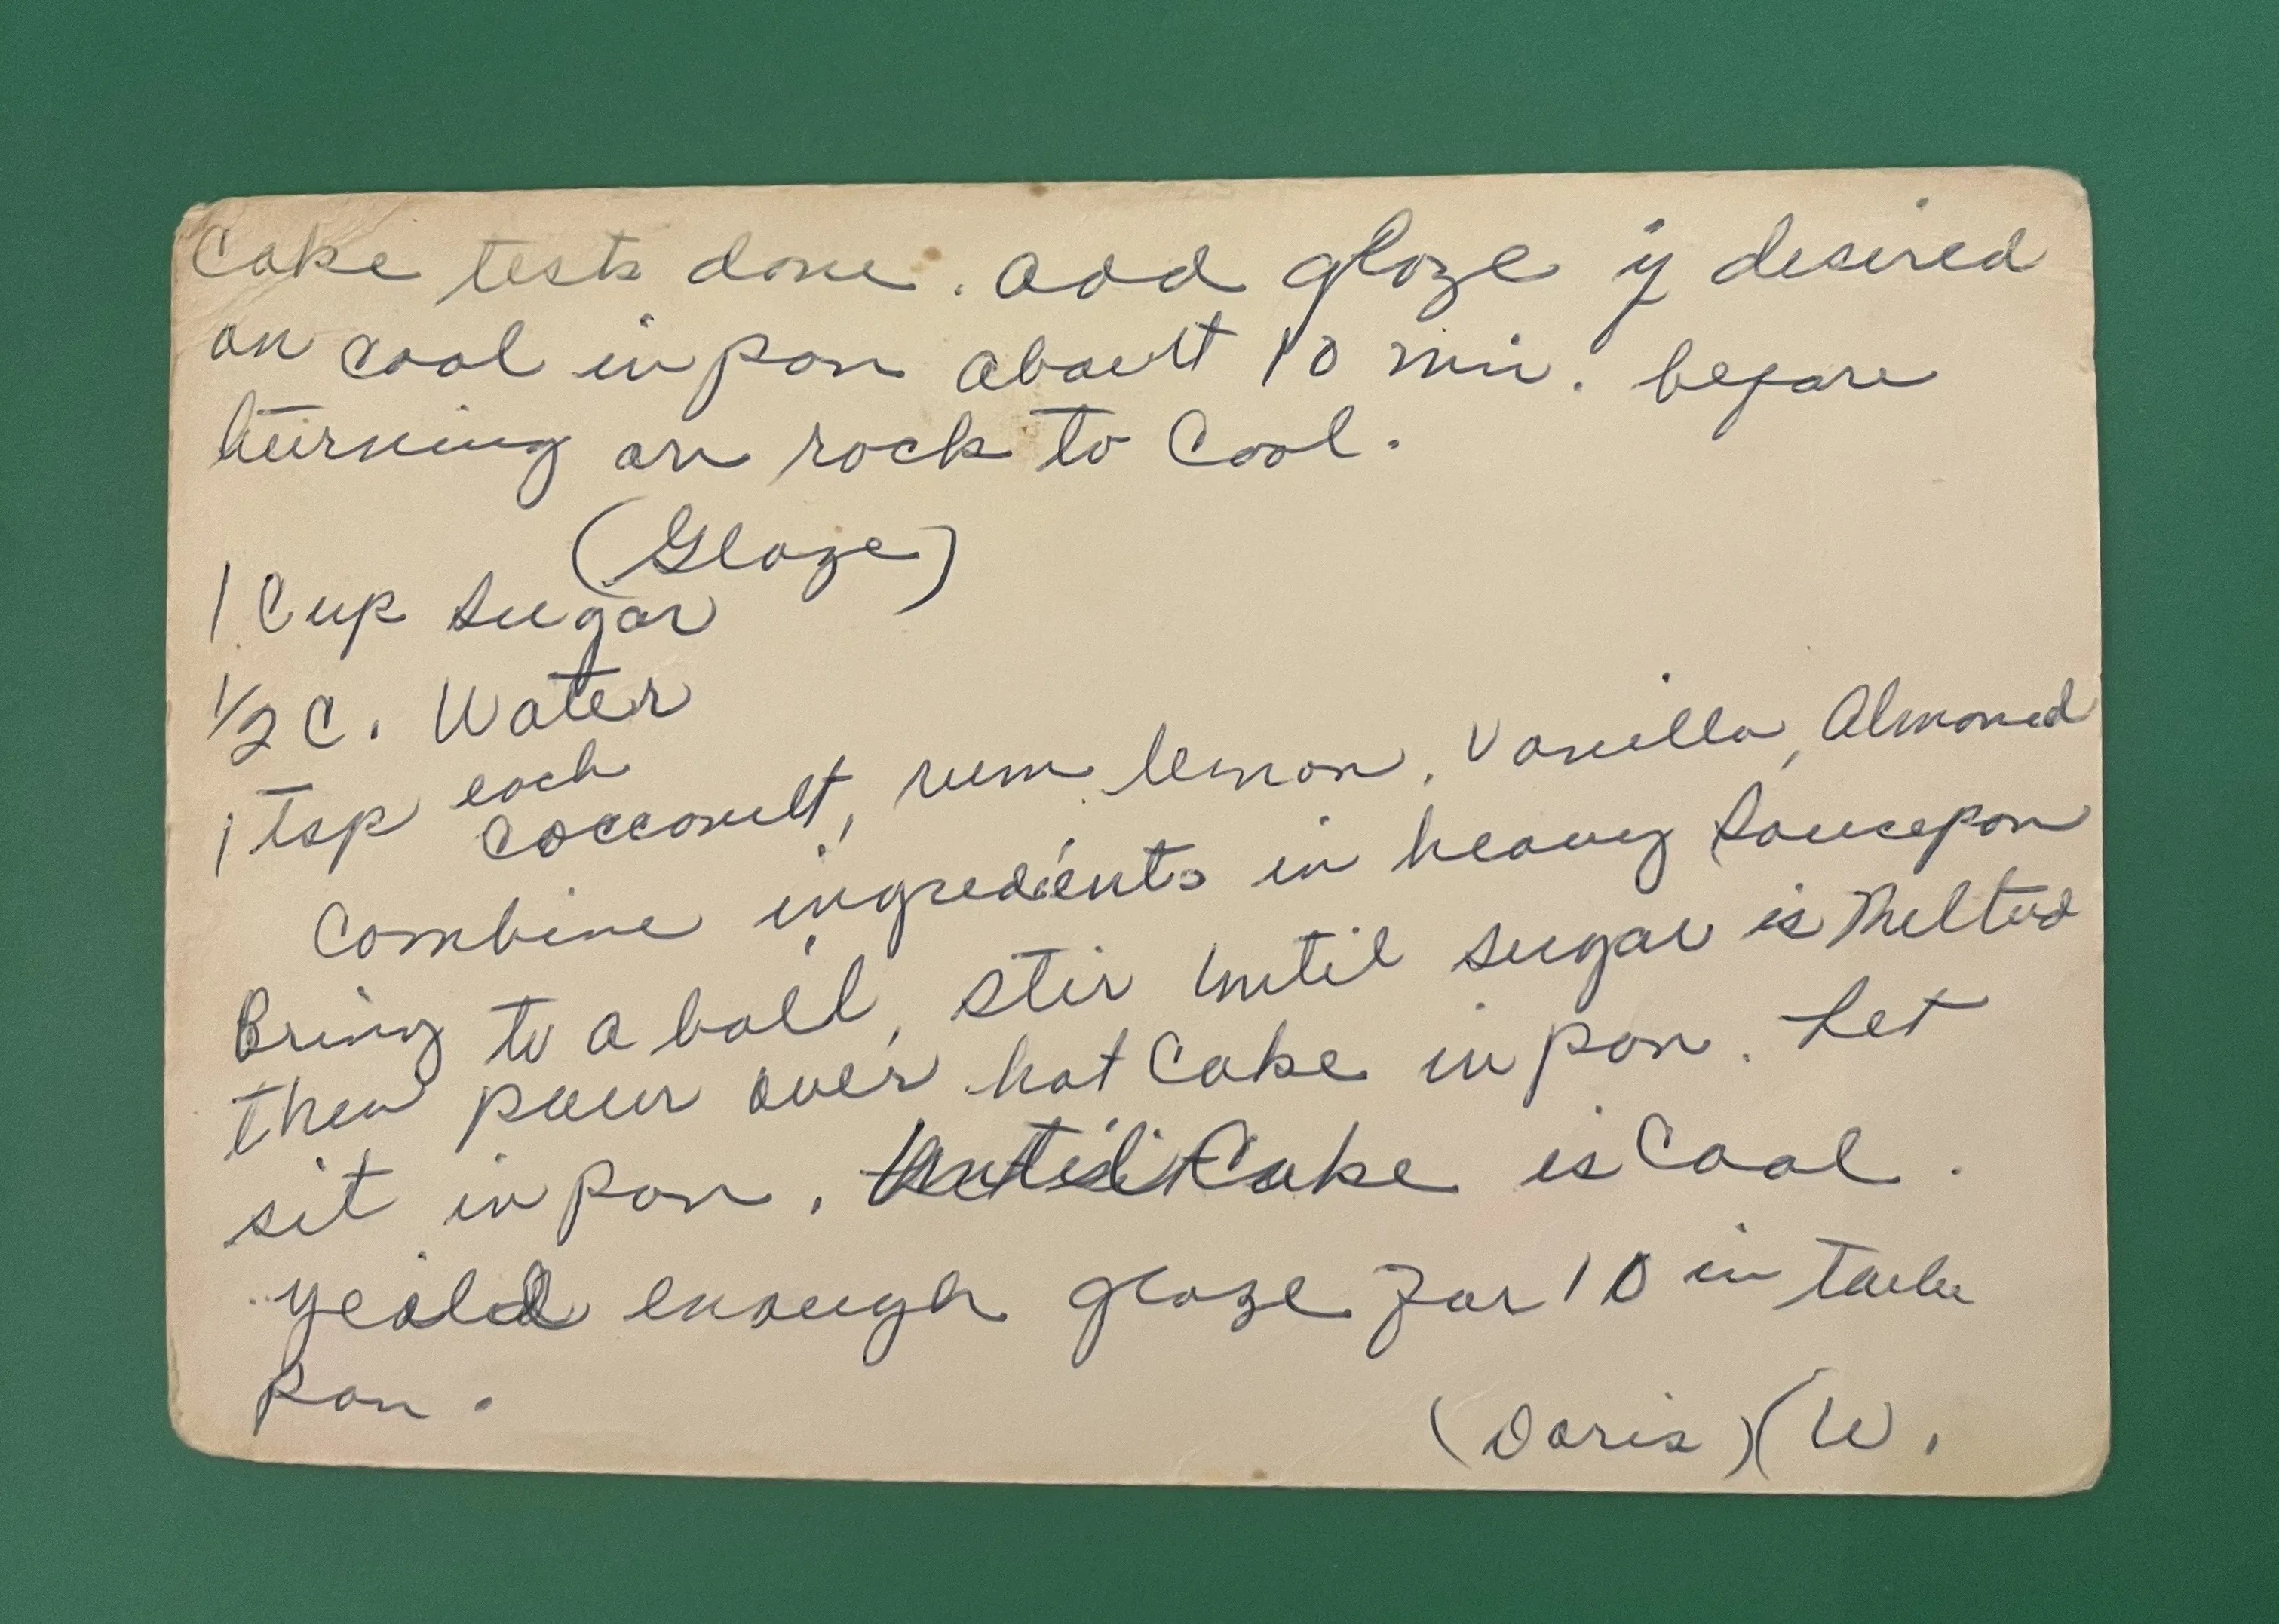 Cake tests done. add glaze if desired
on cool in pan about 10 min. before
turning on rack to Cool.
(Glaze)
1 Cup Sugar
1/2 C. Water
1 Tsp each Cocconult, rum lemon, Vanilla, Almoned
Combine ingredients in heavy Saucepan
Bring to a boil, stir until sugar is Melted
then pour over hot Cake in pan. Let
sit in pan, until Cake is Cool.
yeild enough glaze for 10 in Tube
Pan.
(Doris) (W.